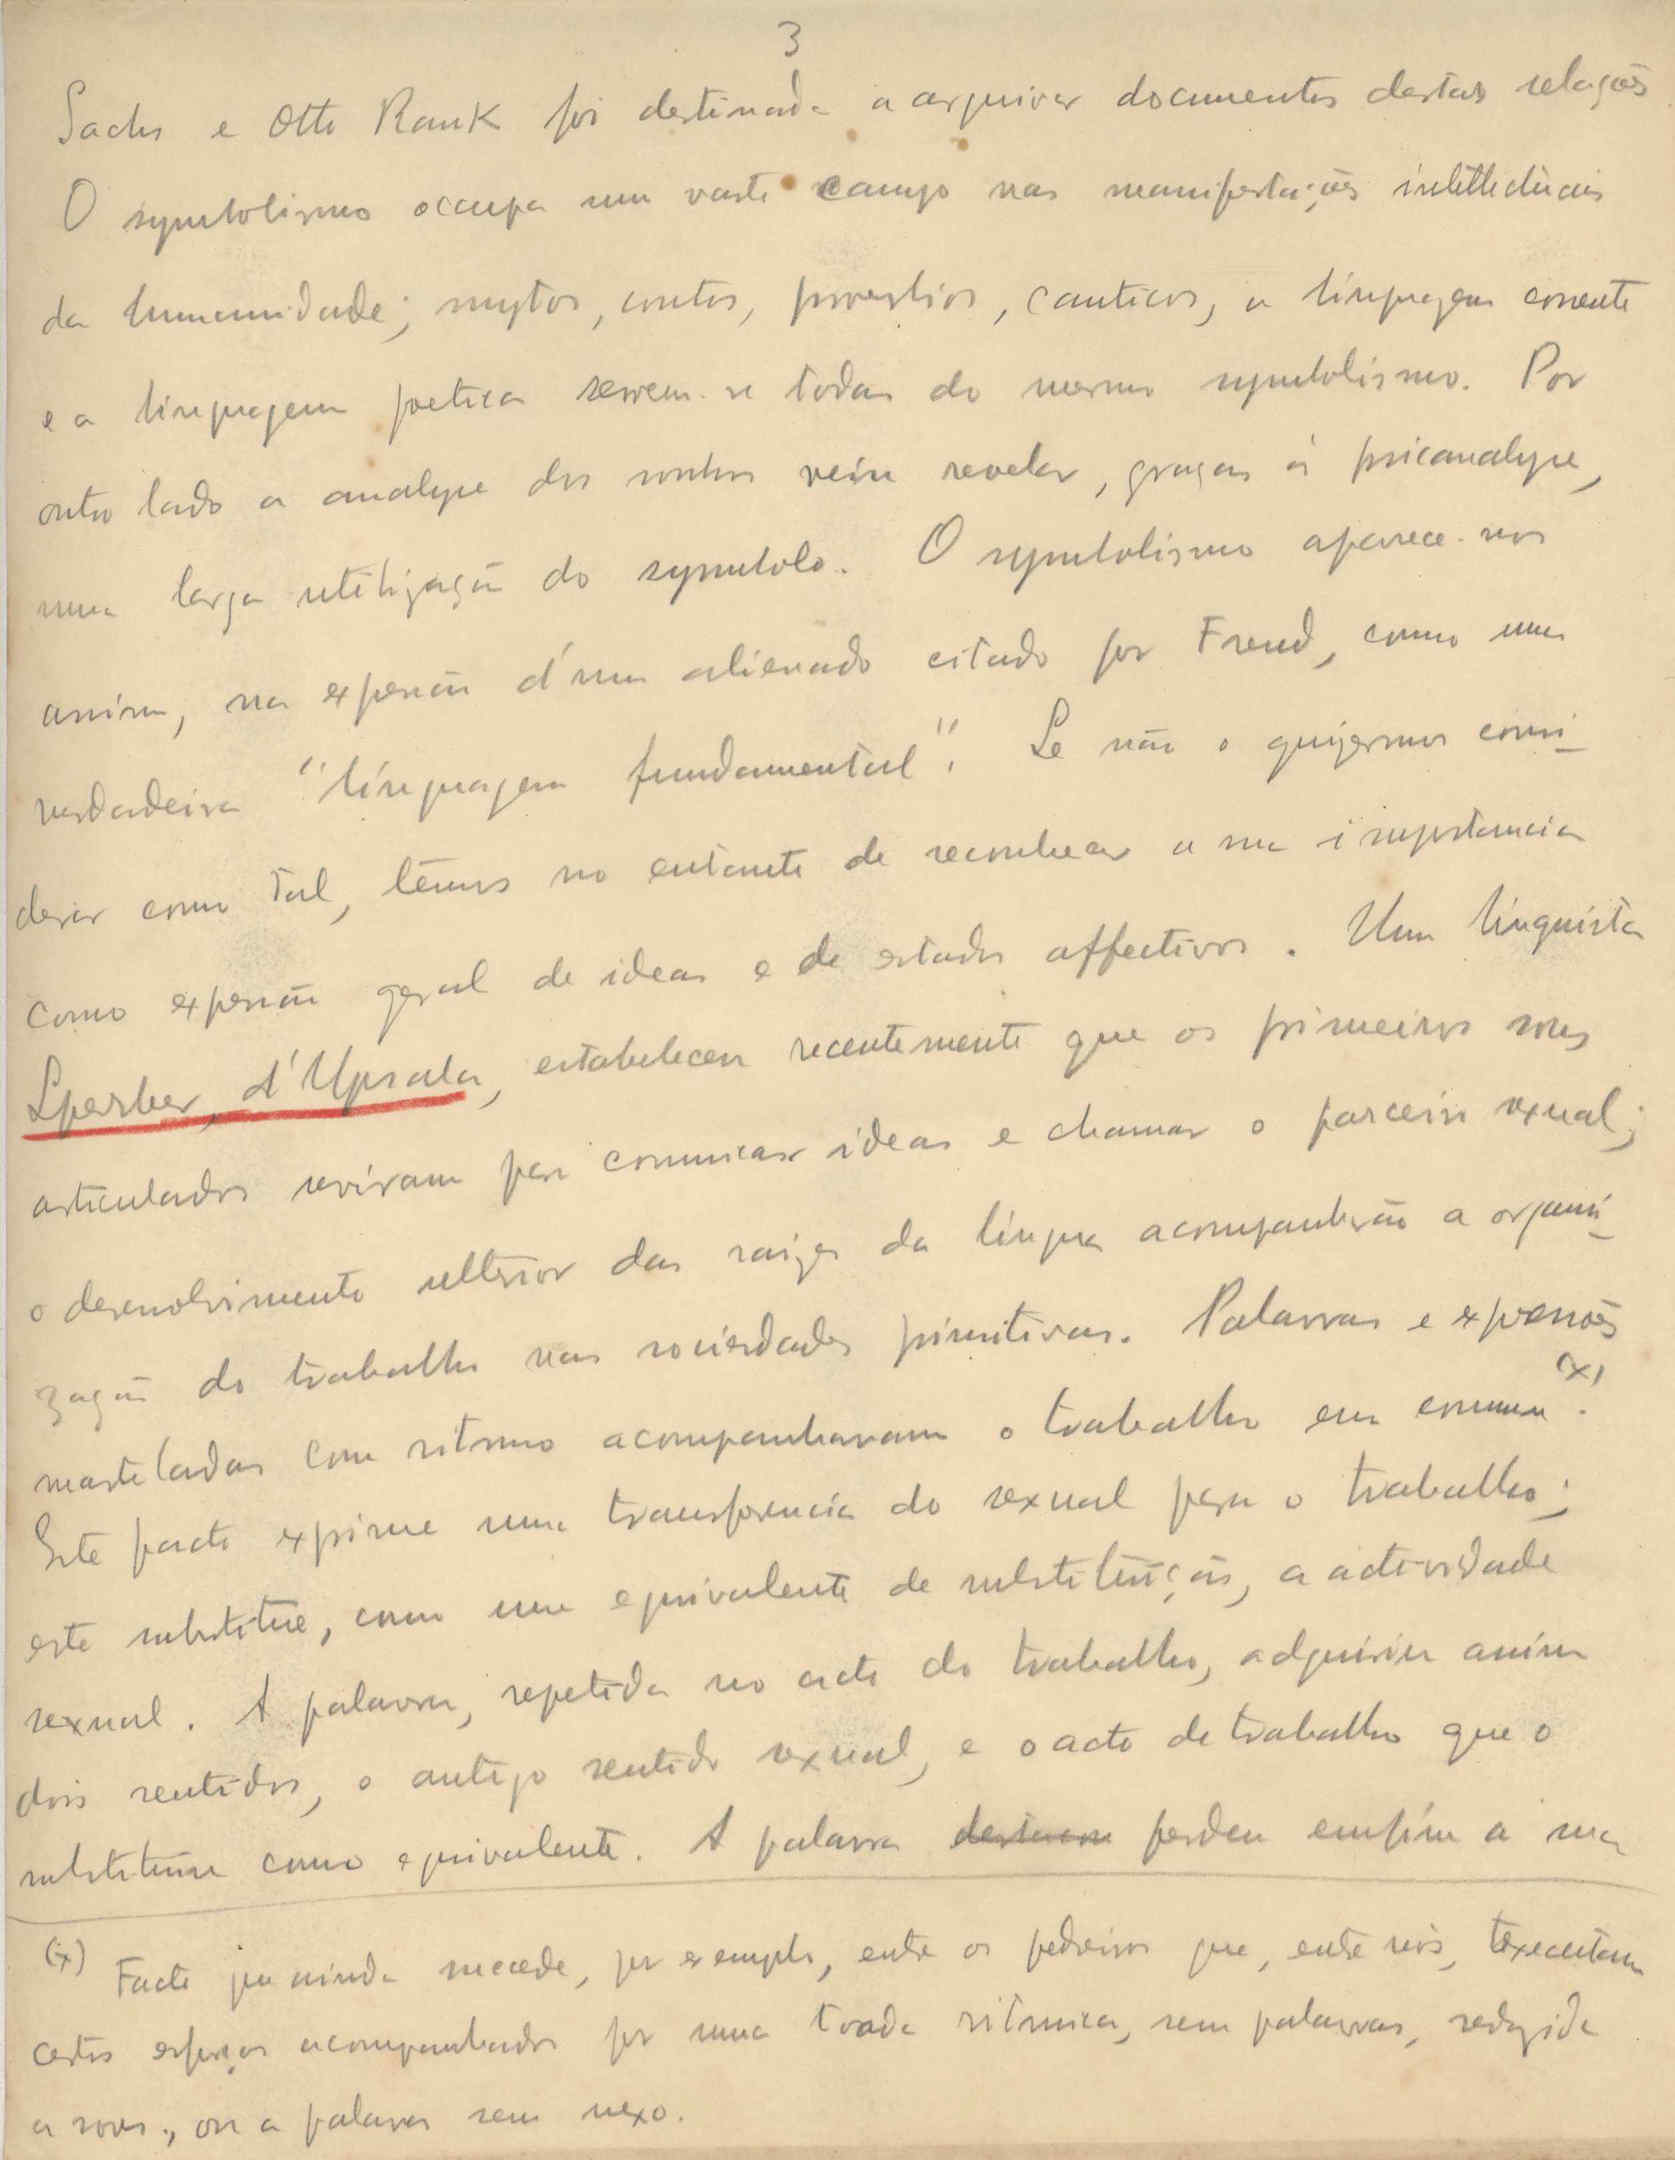 3
Sachs e Otto Rank foi destinada a arquivar documentos destas relações
O symbolismo occupa um vasto campo nas manifestações intellectuais
da humanidade; mytos, contos, proverbios, canticos, a linguagem corrente
e a linguagem poetica servem-se todas do mesmo symbolismo. Por
outro lado a analyse dos sonhos veiu revelar, graças á psicanalyse,
uma larga utilização do symbolo. O symbolismo aparece-nos
assim, na expressão d'um alienado citado por Freud, como uma
verdadeira "linguagem fundamental". Se não o quizermos consi-
derar como tal, têmos no entanto de reconhecer a sua importancia
como expressão geral de ideas e de estados affectivos. Um linguista
Sperber, d'Upsala, estabeleceu recentemente que os primeiros sons
articulados serviram para comunicar ideas e chamar o parceiro sexual;
o desenvolvimento ulterior das raizes da lingua acompanharão a organi-
zação do trabalho nas sociedades primitivas. Palavras e expressões
marteladas com ritmo acompanhavam o trabalho em commum (x).
Este facto exprime uma transferencia do sexual para o trabalho;
este substitue, como um equivalente de substituição, a actividade
sexual. A palavra, repetida no acto do trabalho, adquiriu assim
dois sentidos, o antigo sentido sexual, e o acto de trabalho que o
substituiu como equivalente. A palavra perdeu emfim a sua
(x) Facto que ainda succede, por exemplo, entre os pedreiros que, entre nós, executam
certos esforços acompanhados por uma toada ritmica, sem palavras, reduzida
a sons, ou a palavras sem nexo.